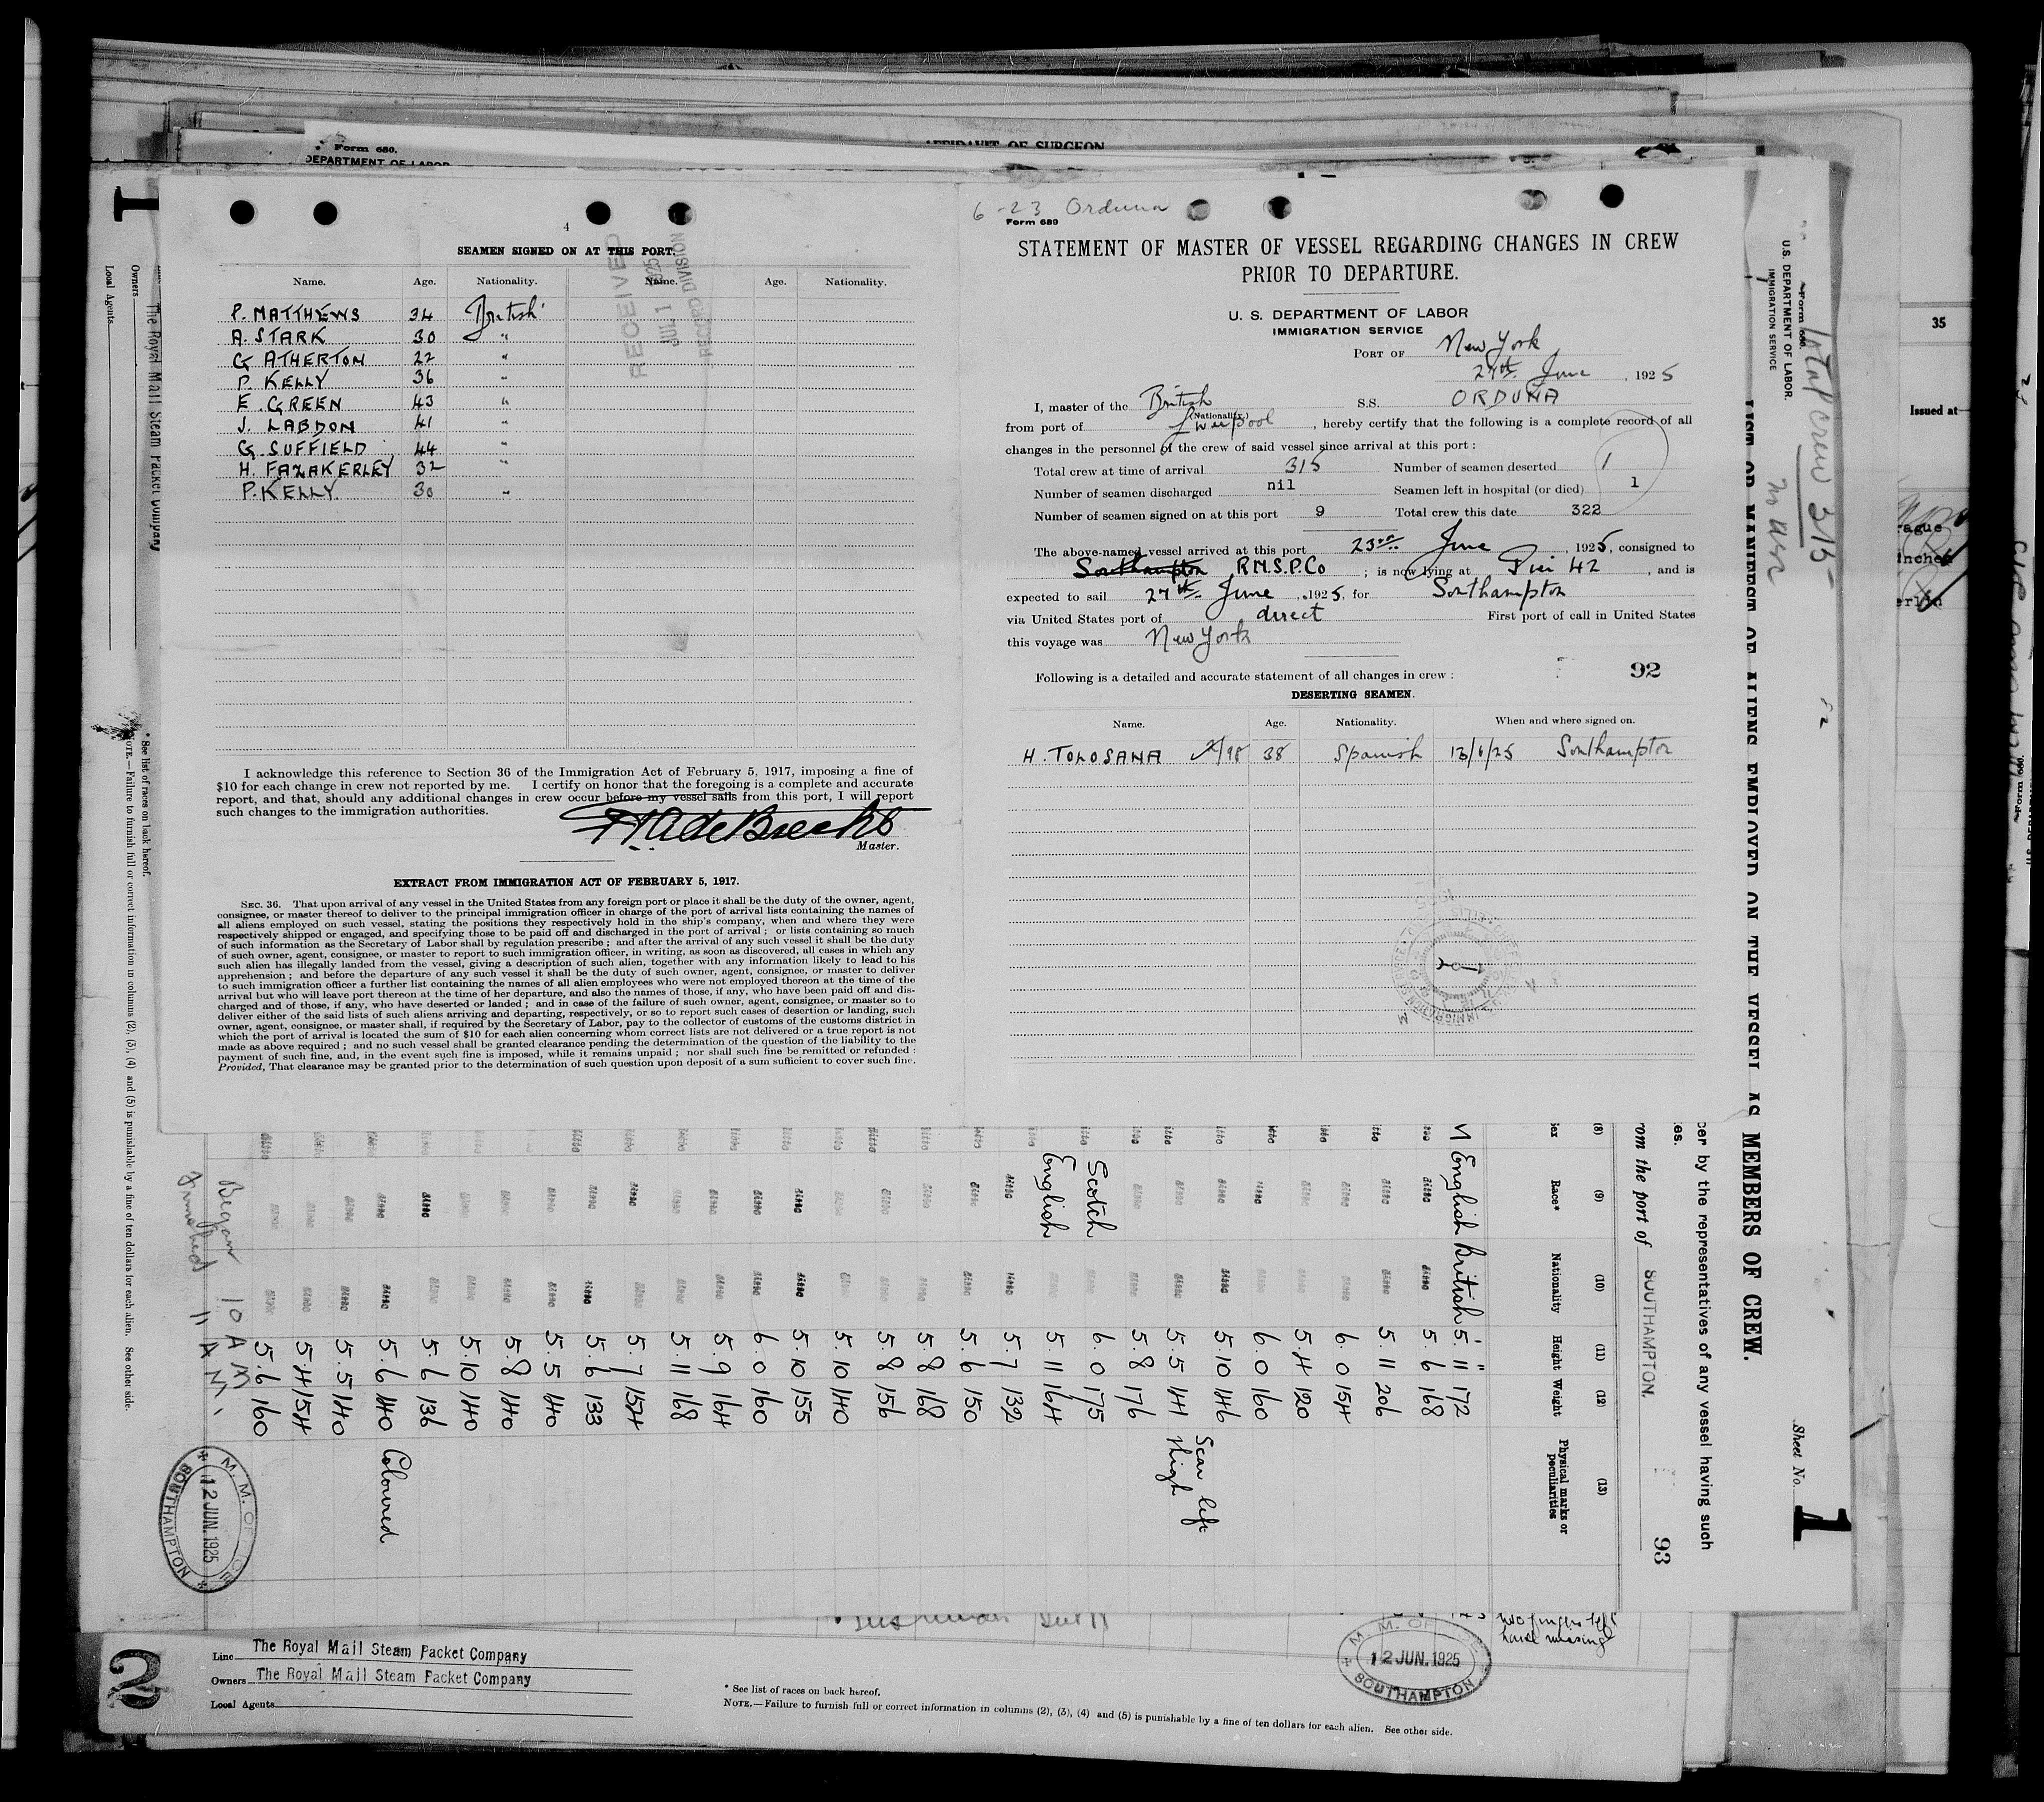 Form 680.
DEPARTMENT OF LABOR
AFFIDAVIT OF SURGEON
4
SEAMEN SIGNED ON AT THIS PORT.
Name. Age. Nationality. Name. Age. Nationality.
P. MATTHEWS 34 British
A. STARK 30 "
G ATHERTON 22 "
P. KELLY 36 "
E. GREEN 43 "
J. LABDON 41 "
G. SUFFIELD 44 "
H. FAZAKERLEY 32 "
P. KELLY 30 "
RECEIVED
JUL 1 1925
RECORD DIVISION
I acknowledge this reference to Section 36 of the Immigration Act of February 5, 1917, imposing a fine of
$10 for each change in crew not reported by me. I certify on honor that the foregoing is a complete and accurate
report, and that, should any additional changes in crew occur before my vessel sails from this port, I will report
such changes to the immigration authorities.
Master.
EXTRACT FROM IMMIGRATION ACT OF FEBRUARY 5, 1917.
SEC. 36. That upon arrival of any vessel in the United States from any foreign port or place it shall be the duty of the owner, agent,
consignee, or master thereof to deliver to the principal immigration officer in charge of the port of arrival lists containing the names of
all aliens employed on such vessel, stating the positions they respectively hold in the ship's company, when and where they were
respectively shipped or engaged, and specifying those to be paid off and discharged in the port of arrival; or lists containing so much
of such information as the Secretary of Labor shall by regulation prescribe; and after the arrival of any such vessel it shall be the duty
of such owner, agent, consignee, or master to report to such immigration officer, in writing, as soon as discovered, all cases in which any
such alien has illegally landed from the vessel, giving a description of such alien, together with any information likely to lead to his
apprehension; and before the departure of any such vessel it shall be the duty of such owner, agent, consignee, or master to deliver
to such immigration officer a further list containing the names of all alien employees who were not employed thereon at the time of the
arrival but who will leave port thereon at the time of her departure, and also the names of those, if any, who have been paid off and dis-
charged and of those, if any, who have deserted or landed; and in case of the failure of such owner, agent, consignee, or master so to
deliver either of the said lists of such aliens arriving and departing, respectively, or so to report such cases of desertion or landing, such
owner, agent, consignee, or master shall, if required by the Secretary of Labor, pay to the collector of customs of the customs district in
which the port of arrival is located the sum of $10 for each alien concerning whom correct lists are not delivered or a true report is not
made as above required; and no such vessel shall be granted clearance pending the determination of the question of the liability to the
payment of such fine, and, in the event such fine is imposed, while it remains unpaid; nor shall such fine be remitted or refunded:
Provided, That clearance may be granted prior to the determination of such question upon deposit of a sum sufficient to cover such fine.
6-23 Orduna
Form 689
STATEMENT OF MASTER OF VESSEL REGARDING CHANGES IN CREW
PRIOR TO DEPARTURE.
U. S. DEPARTMENT OF LABOR
IMMIGRATION SERVICE
PORT OF New York
27th June, 1925
I, master of the British S.S. ORDUNA
(Nationality)
from port of Liverpool, hereby certify that the following is a complete record of all
changes in the personnel of the crew of said vessel since arrival at this port:
Total crew at time of arrival 315 Number of seamen deserted 1
Number of seamen discharged nil Seamen left in hospital (or died) 1
Number of seamen signed on at this port 9 Total crew this date 322
The above-named vessel arrived at this port 23rd June, 1925, consigned to
Southampton R.M.S.P.Co; is now lying at Pier 42, and is
expected to sail 27th June, 1925, for Southampton
via United States port of direct First port of call in United States
this voyage was New York
92
Following is a detailed and accurate statement of all changes in crew:
DESERTING SEAMEN.
Name. Age. Nationality. When and where signed on.
H. TOLOSANA 2/98 38 Spanish 13/6/25 Southampton
Total crew 315
Form 680.
U.S. DEPARTMENT OF LABOR.
IMMIGRATION SERVICE
LIST OR MANIFEST OF ALIENS EMPLOYED ON THE VESSEL AS MEMBERS OF CREW.
Sheet No. 1
cer by the representatives of any vessel having such
es.
rom the port of SOUTHAMPTON.
93
(8) (9) (10) (11) (12) (13)
Sex Race* Nationality Height Weight Physical marks or peculiarities
M English British 5. 11" 172
ditto ditto 5. 6 168
ditto ditto 5. 11 206
ditto ditto 6. 0 154
ditto ditto 5. 4 120
ditto ditto 6. 0 160
ditto ditto 5. 10 146
ditto ditto 5. 5 141 Scar left thigh
ditto ditto 5. 8 176
Scotch ditto 6. 0 175
English ditto 5. 11 164
ditto ditto 5. 7 132
ditto ditto 5. 6 150
ditto ditto 5. 8 168
ditto ditto 5. 8 156
ditto ditto 5. 10 140
ditto ditto 5. 10 155
ditto ditto 6. 0 160
ditto ditto 5. 9 164
ditto ditto 5. 11 168
ditto ditto 5. 7 154
ditto ditto 5. 6 133
ditto ditto 5. 5 140
ditto ditto 5. 8 140
ditto ditto 5. 10 140
ditto ditto 5. 6 136
ditto ditto 5. 6 140 Coloured
ditto ditto 5. 5 140
ditto ditto 5. 4 154
ditto ditto 5. 6 160
Began 10 AM
Finished 11 AM.
12 JUN. 1925
SOUTHAMPTON
1
Owners The Royal Mail Steam Packet Company
Local Agents
* See list of races on back hereof.
NOTE.—Failure to furnish full or correct information in columns (2), (3), (4) and (5) is punishable by a fine of ten dollars for each alien. See other side.
35
Issued at
2
Line The Royal Mail Steam Packet Company
Owners The Royal Mail Steam Packet Company
Local Agents
* See list of races on back hereof.
NOTE.—Failure to furnish full or correct information in columns (2), (3), (4) and (5) is punishable by a fine of ten dollars for each alien. See other side.
two fingers left
hand missing
12 JUN. 1925
SOUTHAMPTON